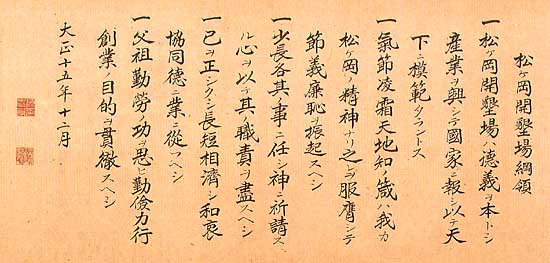 松ケ岡開墾場綱領
一松ケ岡開墾場ハ德義ヲ本トシ
産業ヲ興シテ國家ニ報シ以テ天
下ニ模範タラントス
一氣節凌霜天地知ノ箴ハ我カ
松ケ岡ノ精神ナリ之ヲ服膺シテ
節義廉恥ヲ振起スヘシ
一少長各其ノ事ニ任シ神ニ祈請ス
ル心ヲ以テ其ノ職責ヲ盡スヘシ
一己ヲ正シクシ長短相濟シ和衷
協同德ニ業ニ從フヘシ
一父祖勤勞ノ功ヲ思ヒ勤儉力行
創業ノ目的ヲ貫徹スヘシ
大正十五年十二月